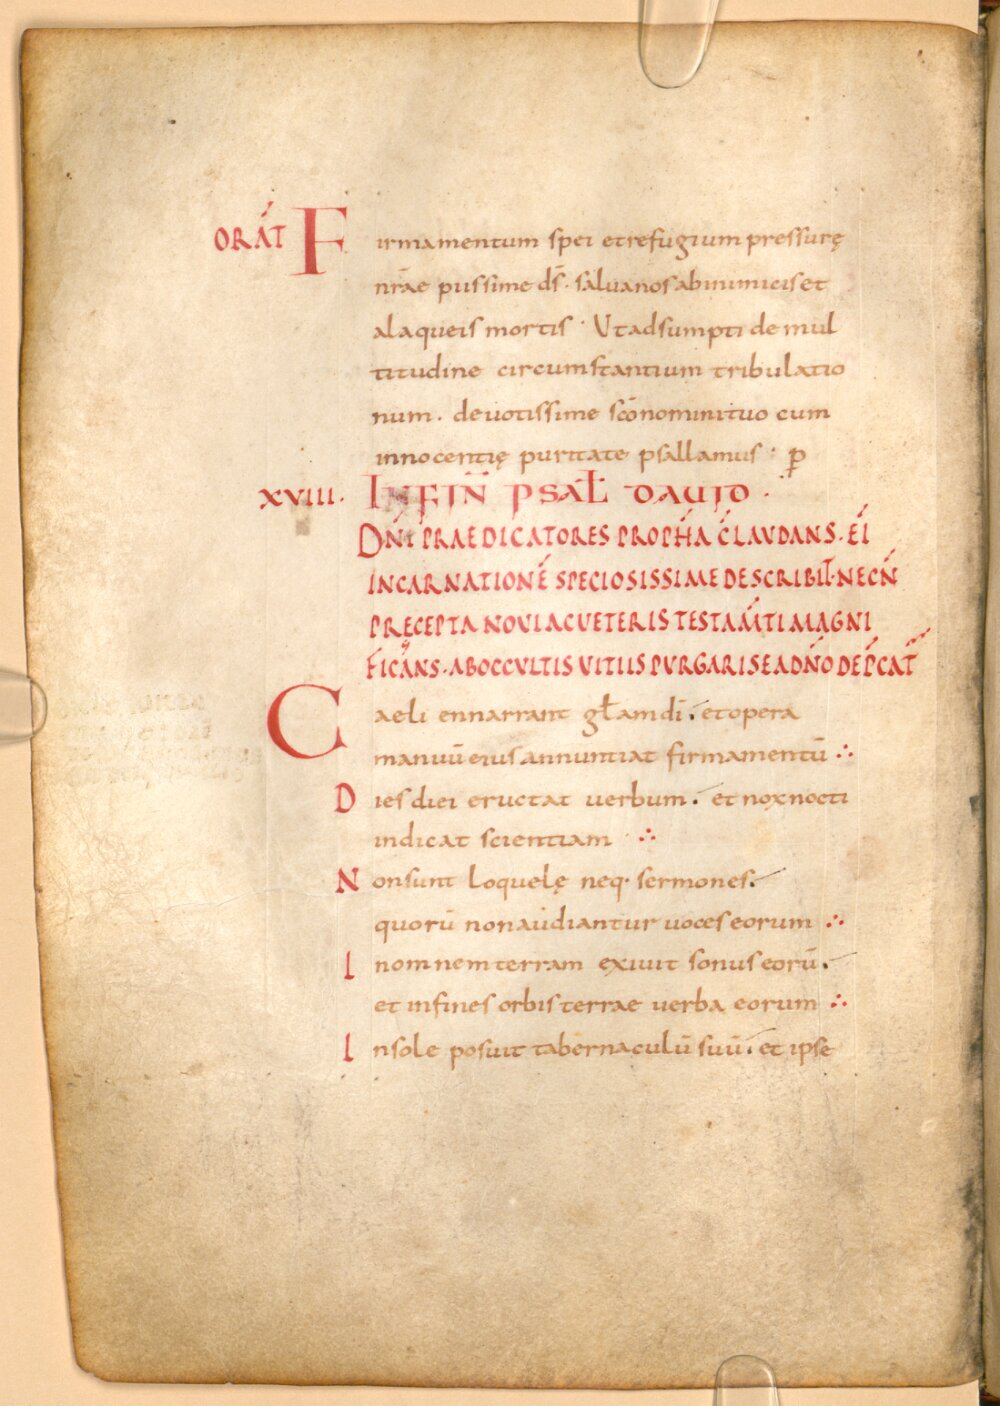 ORAT̄ Firmamentum spei et refugium pressurę
nr̄ae piissime ds̄· salua nos ab inimicis et
a laqueis mortis · Ut adsumpti de mul
titudine circumstantium tribulatio
num · deuotissime sc̄o nomini tuo cum
innocentię puritate psallamus · ꝑ
XVIII · IN FIN̄ PSAL̄ DAUID ·
DN̄I PRAEDICATORES PROPH̄A C̄LAVDANS · EĪ
INCARNATIONĒ SPECIOSISSIME DESCRIBIT̄ · NECN̄
PRĘCEPTA NOVI AC UETERIS TESTAM̄TI MAGNI
FICĀNS · AB OCCVLTIS VITIIS PVRGARI SE A DN̄O DEP̄CAT̄
Caeli ennarrant gl̄am dī · et opera
manuū eius annuntiat firmamentū ∴
Dies diei eructat uerbum · et nox nocti
indicat scientiam · ∴
Non sunt loquelę neq· sermones ·
quorū non audiantur uoces eorum ∴
In omnem terram exiuit sonus eorū ·
et in fines orbis terrae uerba eorum ∴
In sole posuit tabernaculū suū · et ipse